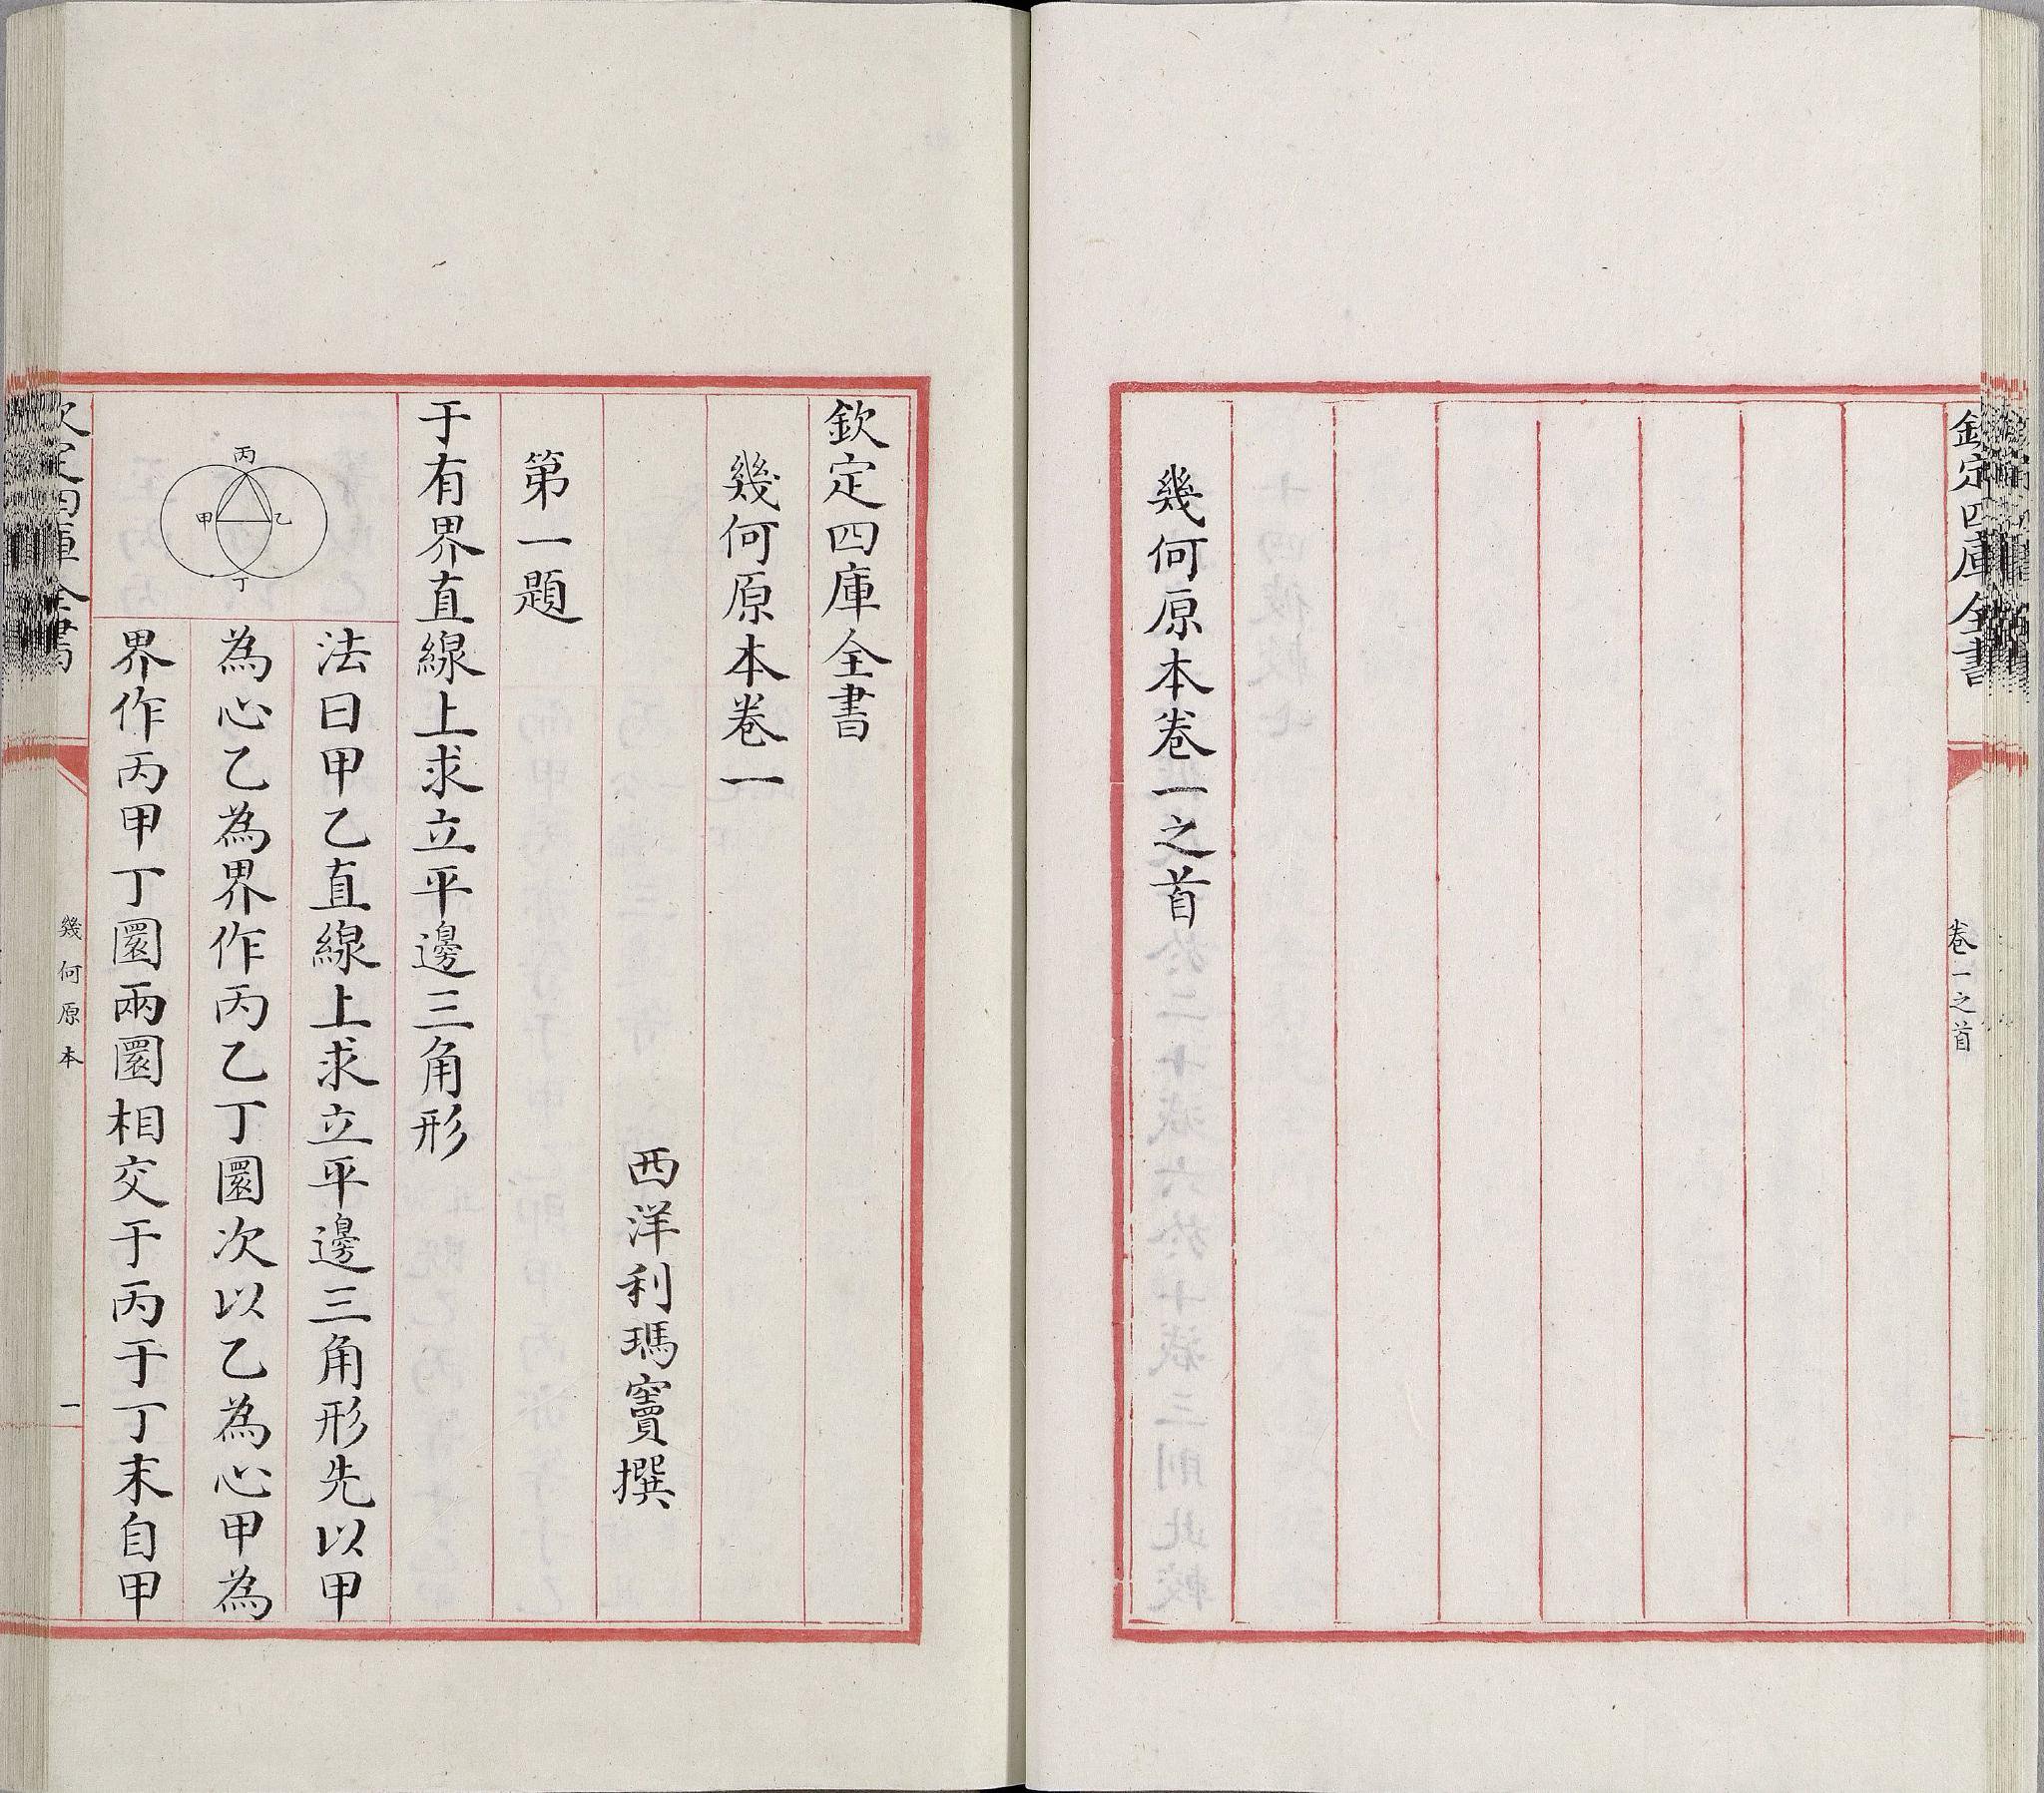 欽定四庫全書
卷一之首
幾何原本卷一之首
欽定四庫全書
幾何原本卷一
西洋利瑪竇撰
第一題
于有界直線上求立平邊三角形
法曰甲乙直線上求立平邊三角形先以甲
為心乙為界作丙乙丁圜次以乙為心甲為
界作丙甲丁圜兩圜相交于丙于丁末自甲
丙
甲
乙
丁
欽定四庫全書
幾何原本
一